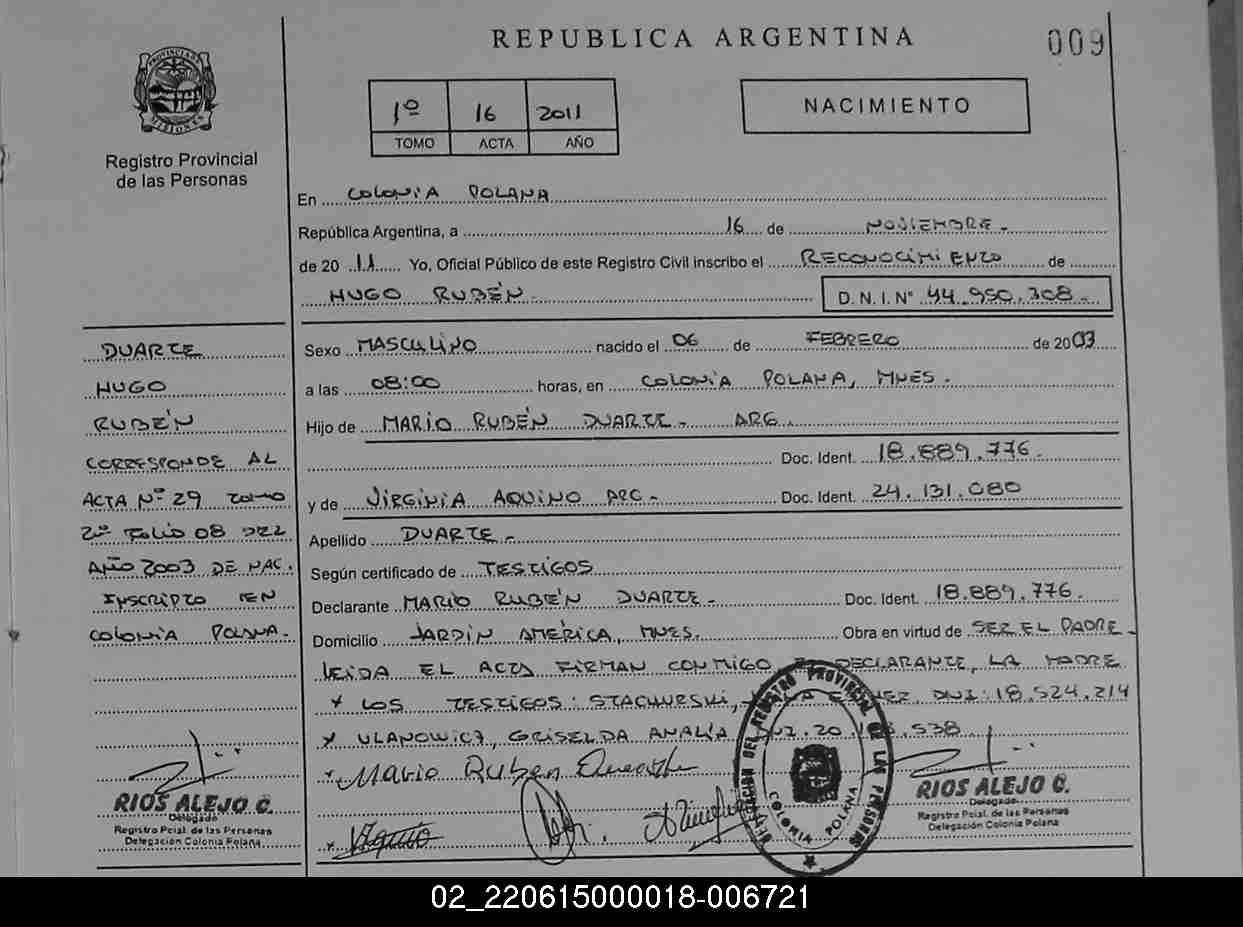 REPUBLICA ARGENTINA
009
PROVINCIA DE MISIONES
Registro Provincial
de las Personas
1º 16 2011
TOMO ACTA AÑO
NACIMIENTO
En COLONIA POLANA
República Argentina, a 16 de NOVIEMBRE.
de 20 11 Yo, Oficial Público de este Registro Civil inscribo el RECONOCIMIENTO de
HUGO RUBÉN. D. N. I. N° 44.950.308.
DUARTE
HUGO
RUBÉN
CORRESPONDE AL
ACTA Nº 29 TOMO
2º FOLIO 08 DEL
AÑO 2003 DE NAC.
INSCRIPTO EN
COLONIA POLANA.
Sexo MASCULINO nacido el 06 de FEBRERO de 2003
a las 08:00 horas, en COLONIA POLANA, MNES.
Hijo de MARIO RUBÉN DUARTE. ARG.
Doc. Ident. 18.889.776.
y de VIRGINIA AQUINO ARG. Doc. Ident. 24.131.080
Apellido DUARTE.
Según certificado de TESTIGOS
Declarante MARIO RUBÉN DUARTE. Doc. Ident. 18.889.776.
Domicilio JARDIN AMÉRICA, MNES. Obra en virtud de SER EL PADRE.
LEIDA EL ACTA FIRMAN CONMIGO EL DECLARANTE, LA MADRE
Y LOS TESTIGOS: STACHURSKI, DNI: 18.524.214
Y ULANOWICZ, GRISELDA ANALÍA DNI. 20. .538
Mario Ruben Duarte
Aquino
RIOS ALEJO C.
Delegado
Registro Pcial. de las Personas
Delegación Colonia Polana
DELEGACION DEL REGISTRO PROVINCIAL DE LAS PERSONAS
COLONIA POLANA
RIOS ALEJO C.
Delegado
Registro Pcial. de las Personas
Delegación Colonia Polana
02_220615000018-006721